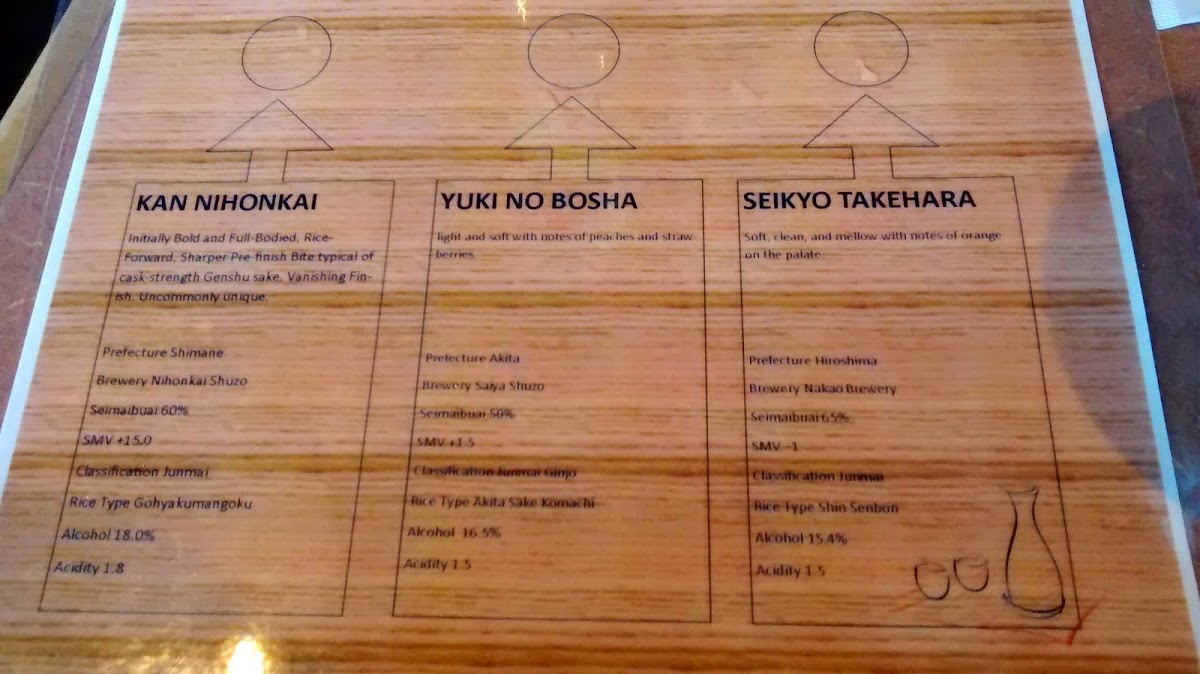 KAN NIHONKAI
Initially Bold and Full-Bodied, Rice-
Forward, Sharper Pre-finish Bite typical of
cask-strength Genshu sake, Vanishing Fin-
ish. Uncommonly unique.
Prefecture Shimane
Brewery Nihonkai Shuzo
Seimaibuai 60%
SMV +15.0
Classification Junmai
Rice Type Gohyakumangoku
Alcohol 18.0%
Acidity 1.8
YUKI NO BOSHA
light and soft with notes of peaches and straw-
berries.
Prefecture Akita
Brewery Saiya Shuzo
Seimaibuai 50%
SMV +1.5
Classification Junmai Ginjo
Rice Type Akita Sake Komachi
Alcohol 16.5%
Acidity 1.5
SEIKYO TAKEHARA
Soft, clean, and mellow with notes of orange
on the palate.
Prefecture Hiroshima
Brewery Nakao Brewery
Seimaibuai 65%
SMV -1
Classification Junmai
Rice Type Shin Senbon
Alcohol 15.4%
Acidity 1.5